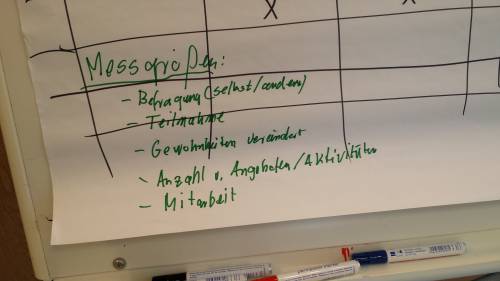 X
X
Messgrößen:
– Befragung (selbst/andere)
– Teilnahme
– Gewohnheiten verändert
– Anzahl v. Angeboten/Aktivitäten
– Mitarbeit